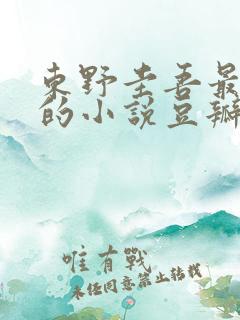 東野圭吾最
的小說豆瓣
唯有戰
未經同意禁止轉載